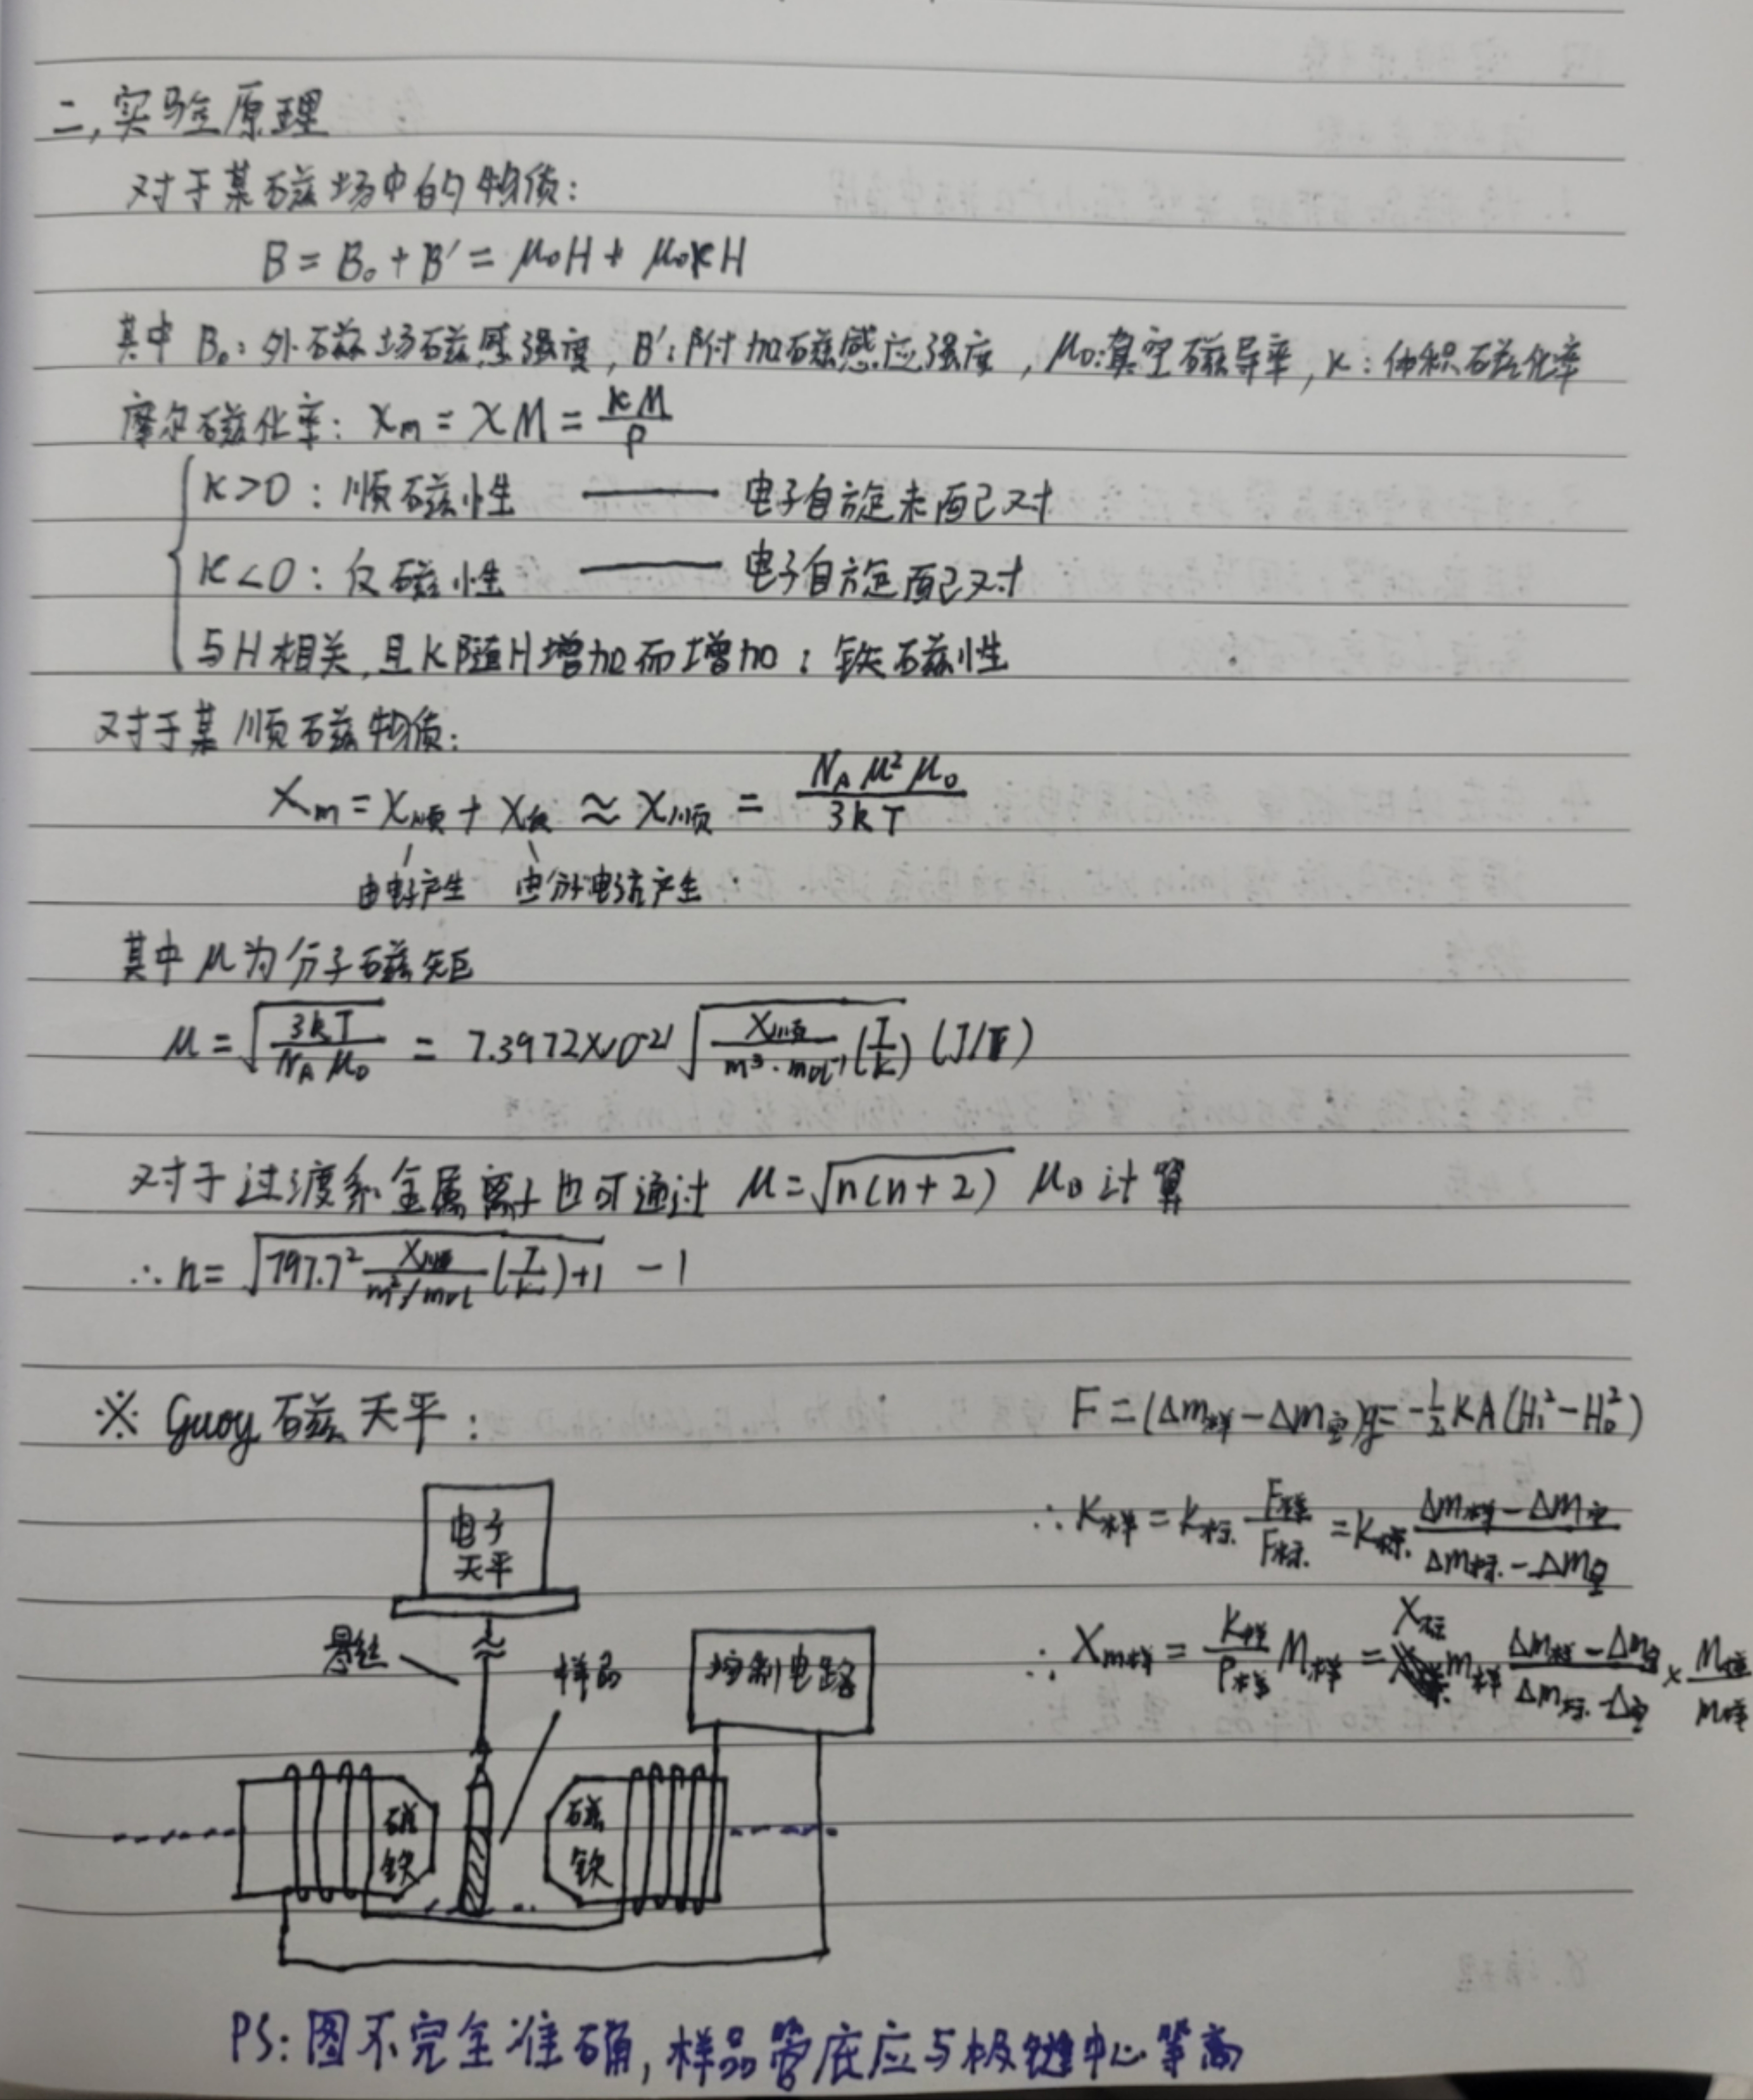 二,实验原理
对于某磁场中的物质:
B = B₀ + B′ = μ₀H + μ₀κH
其中 B₀: 外磁场磁感强度, B′: 附加磁感应强度, μ₀: 真空磁导率, κ: 体积磁化率
摩尔磁化率: χm = χM = κM/ρ
κ>0: 顺磁性 —— 电子自旋未配对
κ<0: 反磁性 —— 电子自旋配对
与H相关,且κ随H增加而增加: 铁磁性
对于某顺磁物质:
χm = χ顺 + χ反 ≈ χ顺 = N_A μ² μ₀ / 3kT
由电子产生 由分子电流产生
其中 μ 为分子磁矩
μ = √(3kT / N_A μ₀) = 7.3972×10⁻²¹ √(χ顺 / m³·mol⁻¹ (T/K)) (J/T)
对于过渡系金属离子也可通过 μ = √(n(n+2)) μ_B 计算
∴ n = √(797.7² χ顺 / m³/mol (T/K) + 1) − 1
※ Guoy 磁天平:
F = (Δm样 − Δm空)g = −½ κA(H₁² − H₀²)
∴ κ样 = κ标 F样/F标 = κ标 (Δm样 − Δm空)/(Δm标 − Δm空)
∴ χm样 = κ样/ρ样 M样 = χ标 m样 (Δm样 − Δm空)/(Δm标 − Δ空) ×
电子
天平
悬丝
样品
控制电路
磁
铁
磁
铁
PS: 图不完全准确, 样品管底应与极缝中心等高